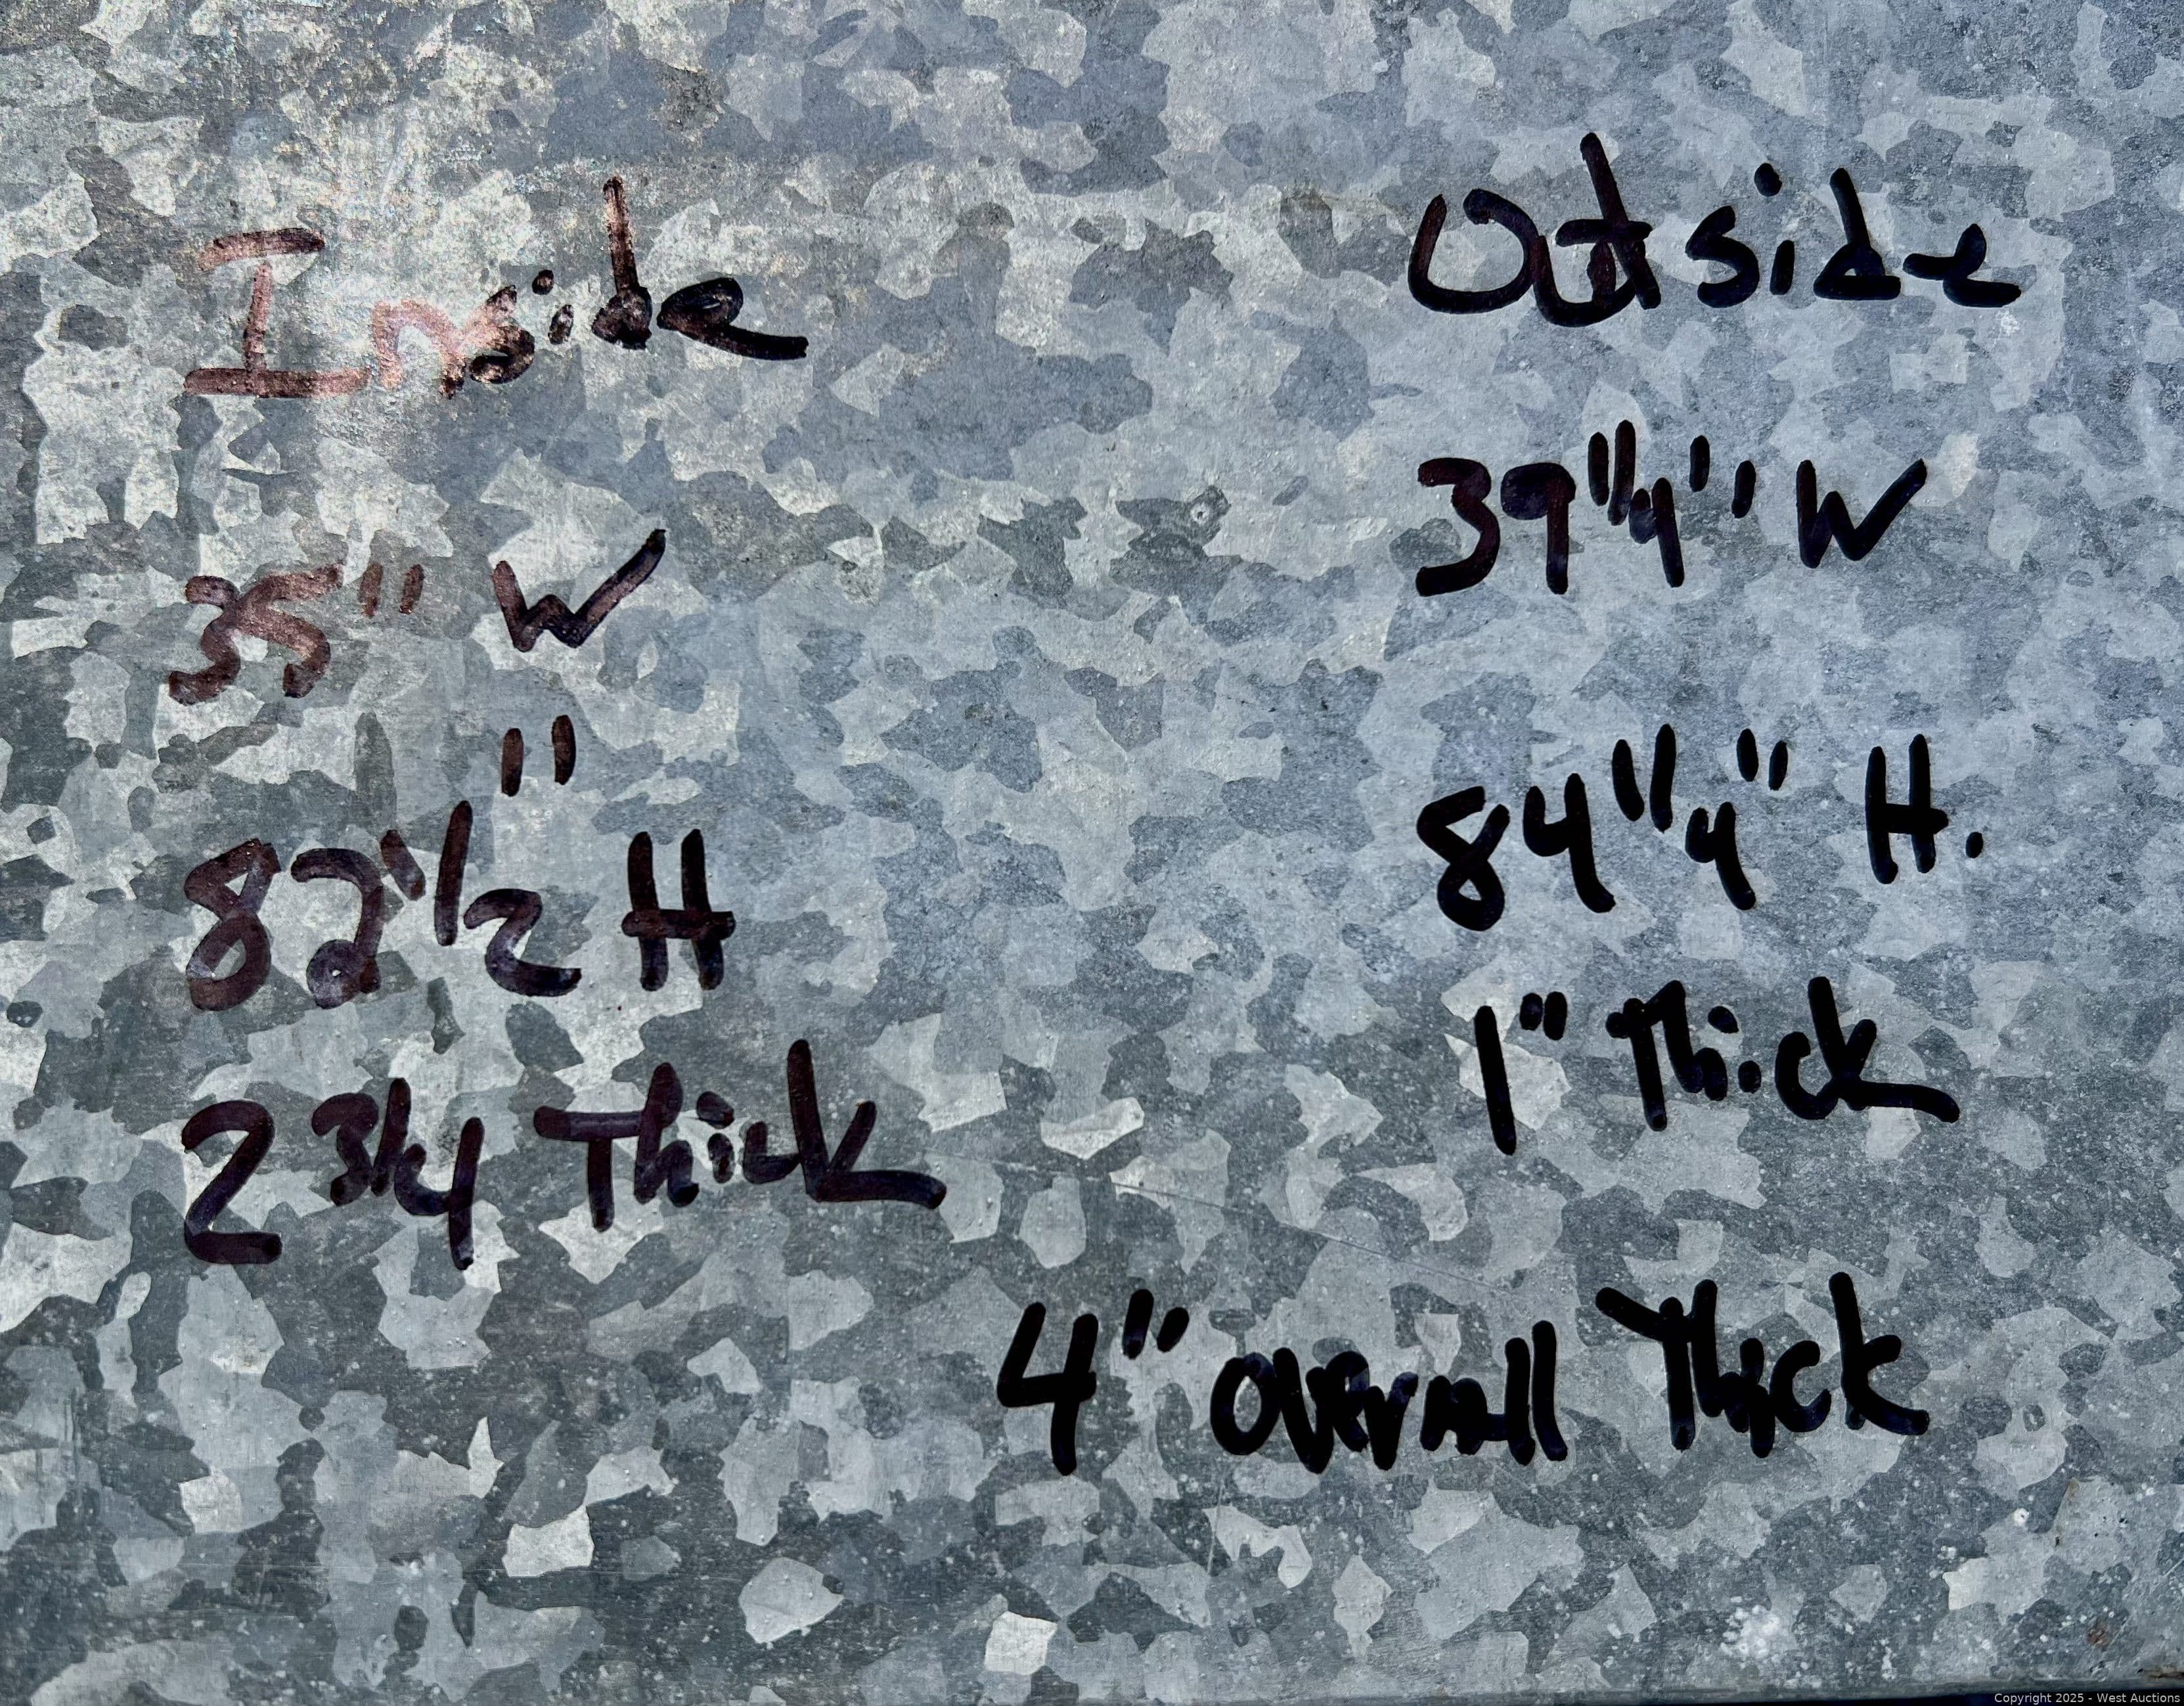 Inside
35" W
82 1/2" H
2 3/4 Thick
Outside
39 1/4" W
84 1/4" H.
1" Thick
4" overall Thick
Copyright 2025 - West Auctions